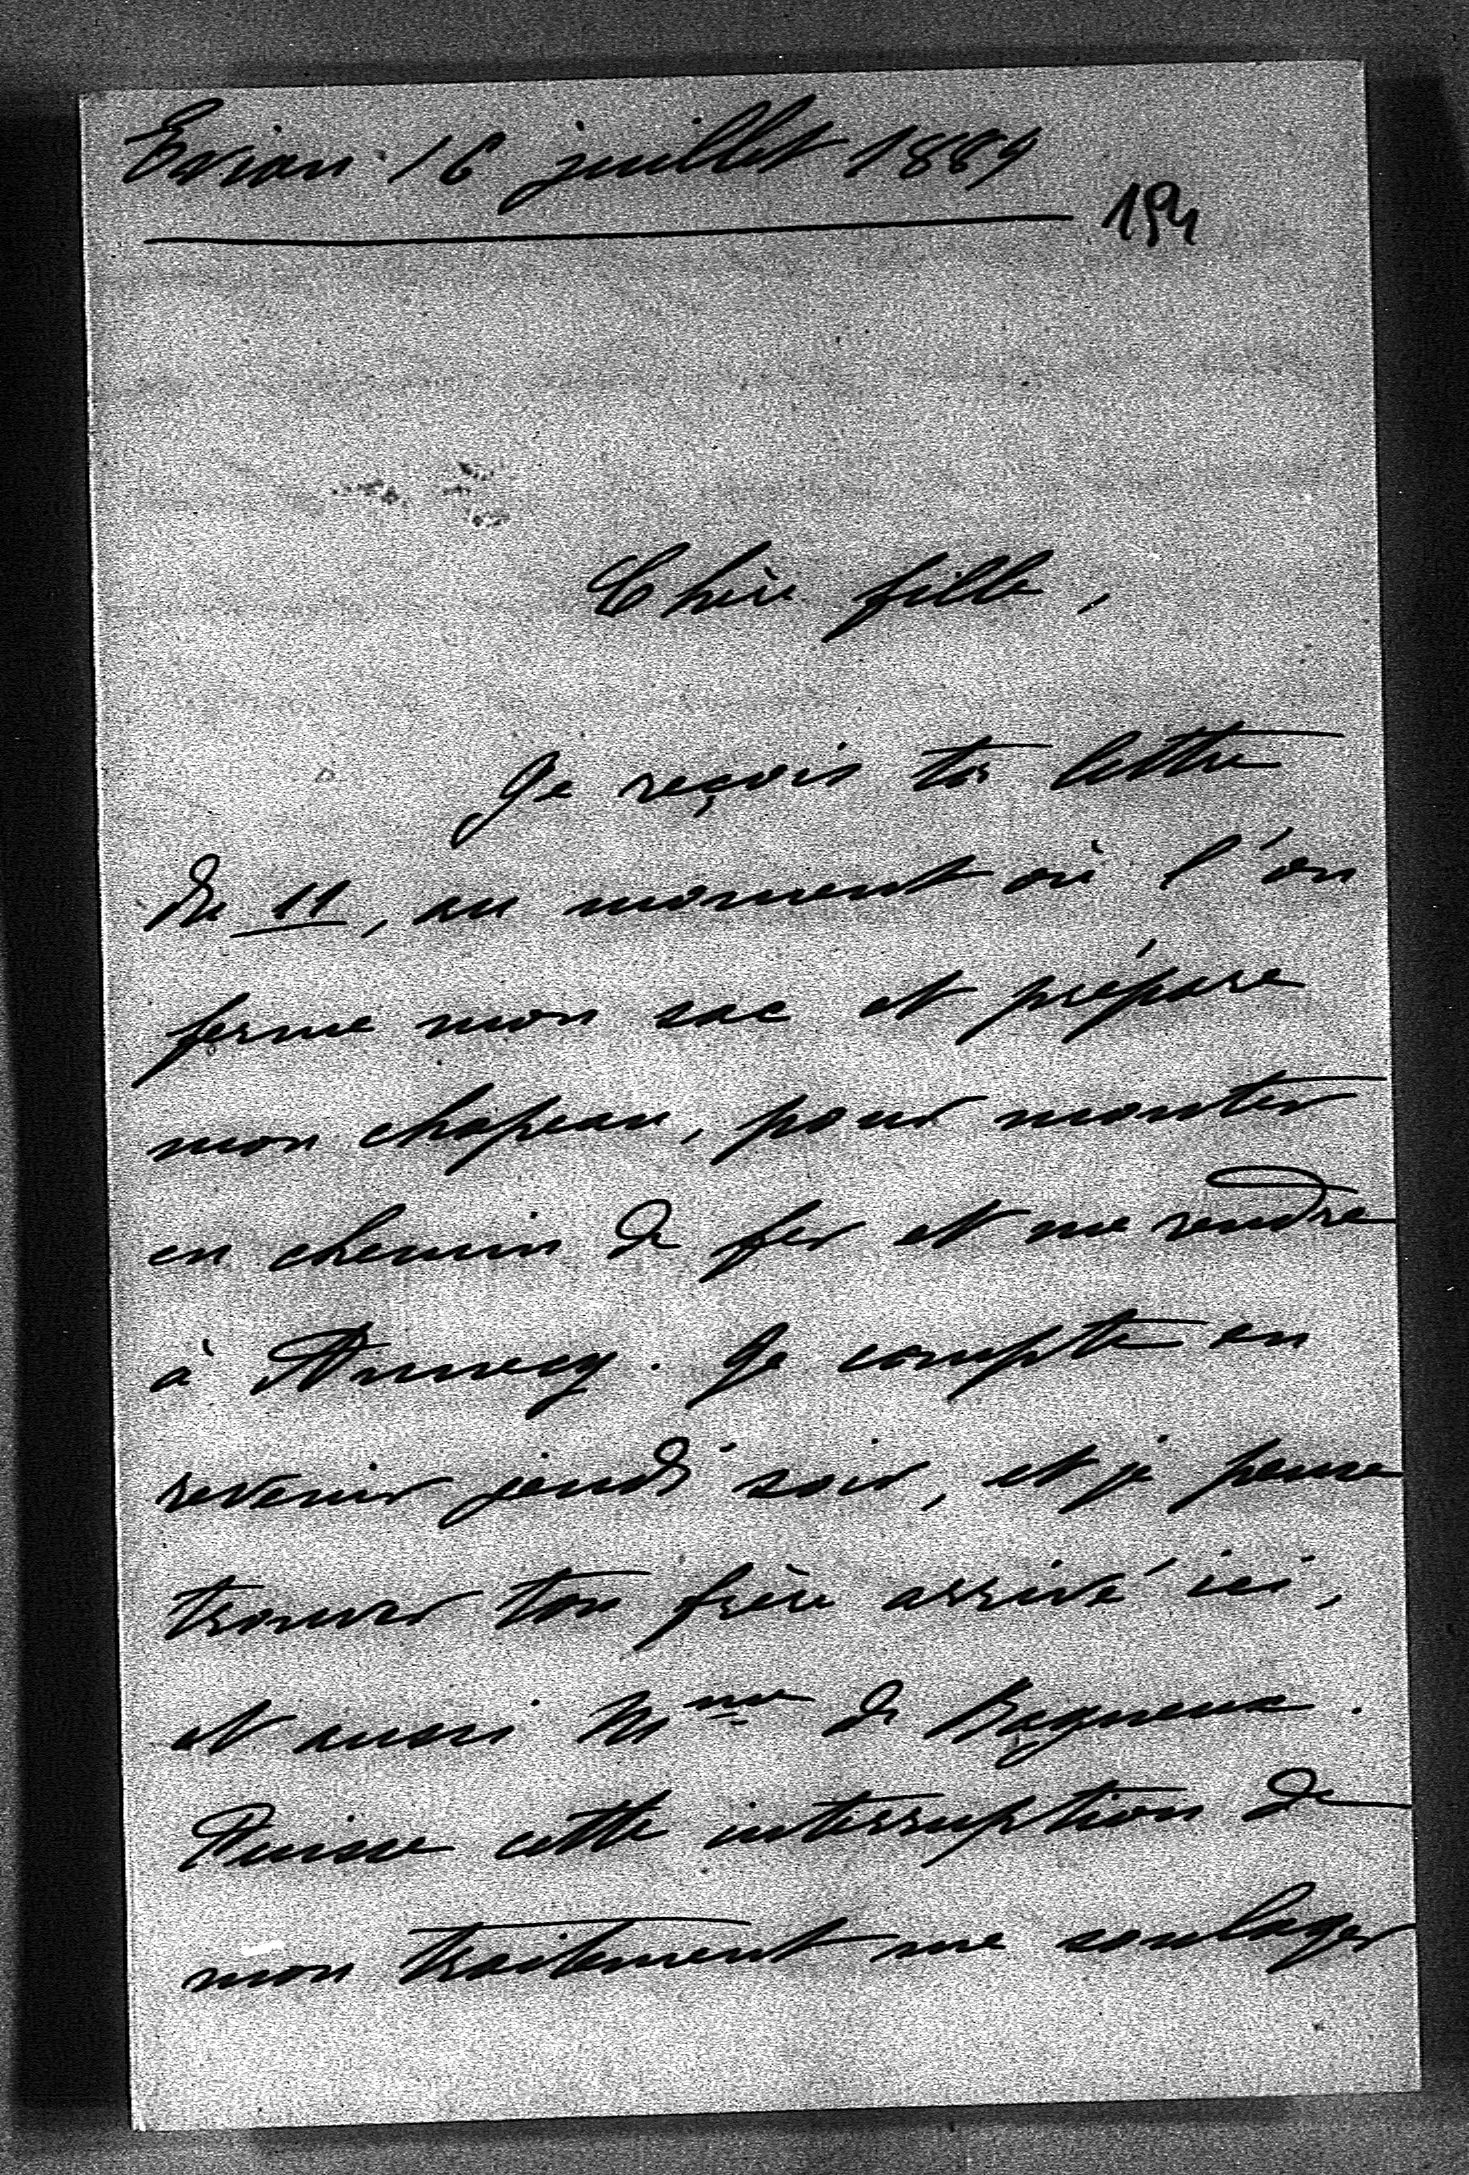 Evian 16 juillet 1889
194
Chère fille,
Je reçois ta lettre
du 11, au moment où l'on
ferme mon sac et prépare
mon chapeau, pour monter
en chemin de fer et me rendre
à Annecy. Je compte en
revenir jeudi soir, et je pense
trouver ton frère arrivé ici,
et aussi Mme de Bagneux.
Puisse cette interruption de
mon traitement me soulager